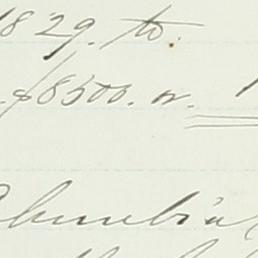 1829. to
$8500. or.
Columbia